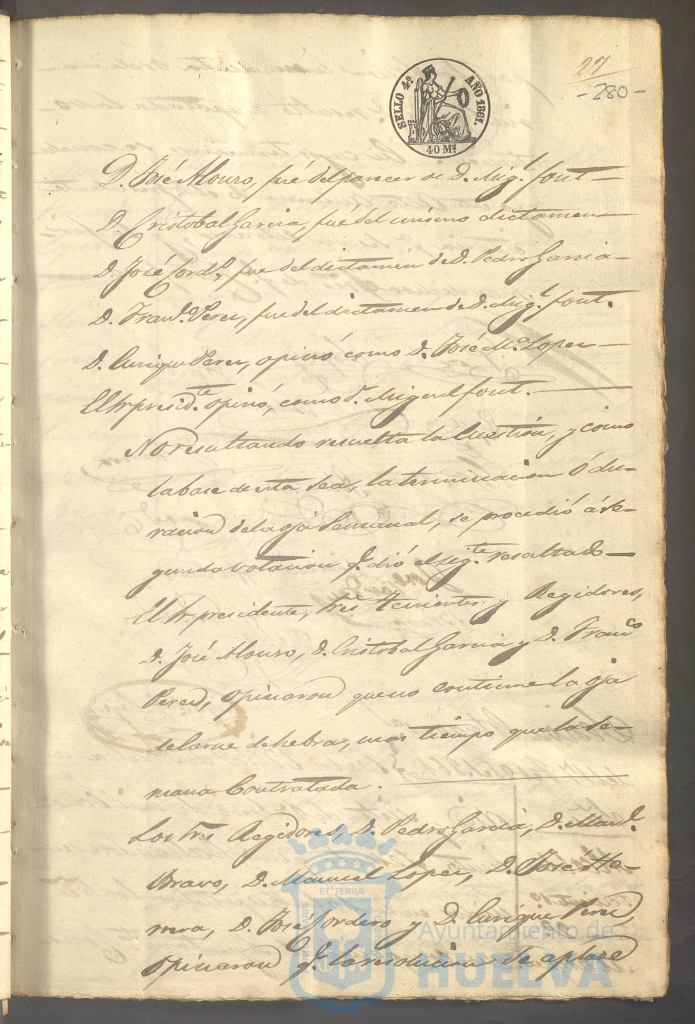 27
-280-
SELLO 4º AÑO 1861.
40 Ms.
D. José Alonso, fué del parecer de D. Migl. font—
D. Cristobal Garcia, fué del mismo dictamen
D. José Cordº, fue del dictamen de D. Pedro Garcia—
D. Frand. Perez, fue del dictamen de D. Migl. font.
D. Enrique Perez, opinó como D. José Mª Lopez—
El Sr presidte. opinó, como D. Miguel font.—
No resultando resuelta la Cuestión, y como
la base de esta sea, la terminacion ó du-
racion de la oja Semanal, se procedió á se-
gunda votacion q. dió el sigte. resultado—
El Sr. presidente, tres tenientes y Regidores,
D. José Alonso, D. Cristobal Garcia y D. Franco
Perez, opinaron que no continue la oja
de larne de hebra, mas tiempo que la se-
mana Contratada.
Los tres Regidores, D. Pedro Garcia, D. Manl.
Bravo, D. Manuel Lopez, D. José He-
rrera, D. José Cordero y D. Enrique Perez,
opinaron q. la resolucion se aplaze
ET TERRÆ
Ayuntamiento de
HUELVA